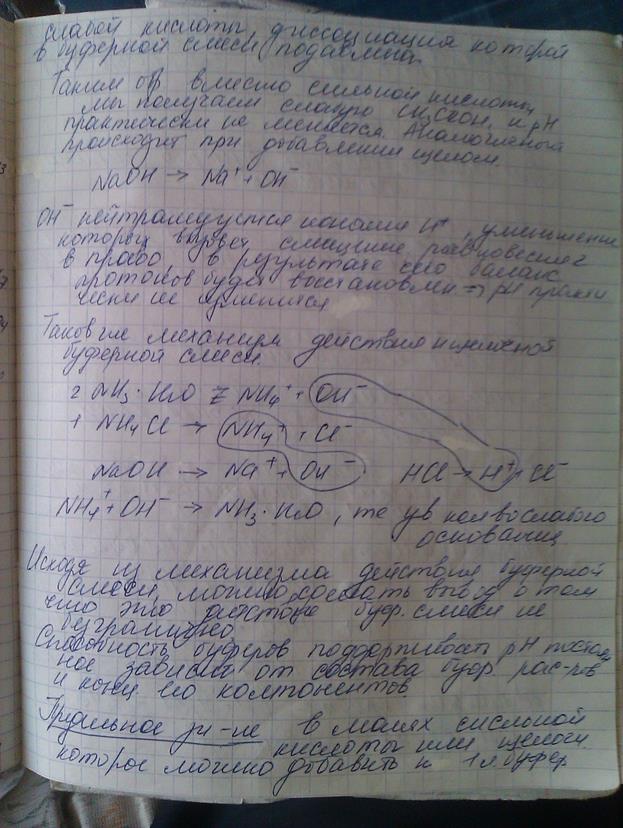 слабой кислоты, диссоциация которой
в буферной смеси подавлена.
Таким обр вместо сильной кислоты
мы получаем слабую CH3COOH, и pH
практически не меняется. Аналогичный
происходит при добавлении щелочи.
NaOH → Na+ + OH-
OH- нейтрализуется ионами H+, уменьшение
которых вызовет смещение равновесие
в право в результате чего баланс
протонов будет восстановлен => pH практи
чески не изменится
Таков же механизм действия щелочной
буферной смеси.
NH3·H2O ⇄ NH4+ + OH-
NH4Cl → NH4+ + Cl-
NaOH → Na+ + OH- HCl → H+ + Cl-
NH4+ + OH- → NH3·H2O, те ув колво слабого
основания
Исходя из механизма действия буферной
смеси, можно сделать вывод о том
что это действие буф. смеси не
безгранично
Способность буферов поддерживать pH постоян
ное зависит от состава буф. рас-ров
и конц его компонентов
Предельное зн-ие в молях сильной
кислоты или щелочи
которое можно добавить к 1 л. буфер.